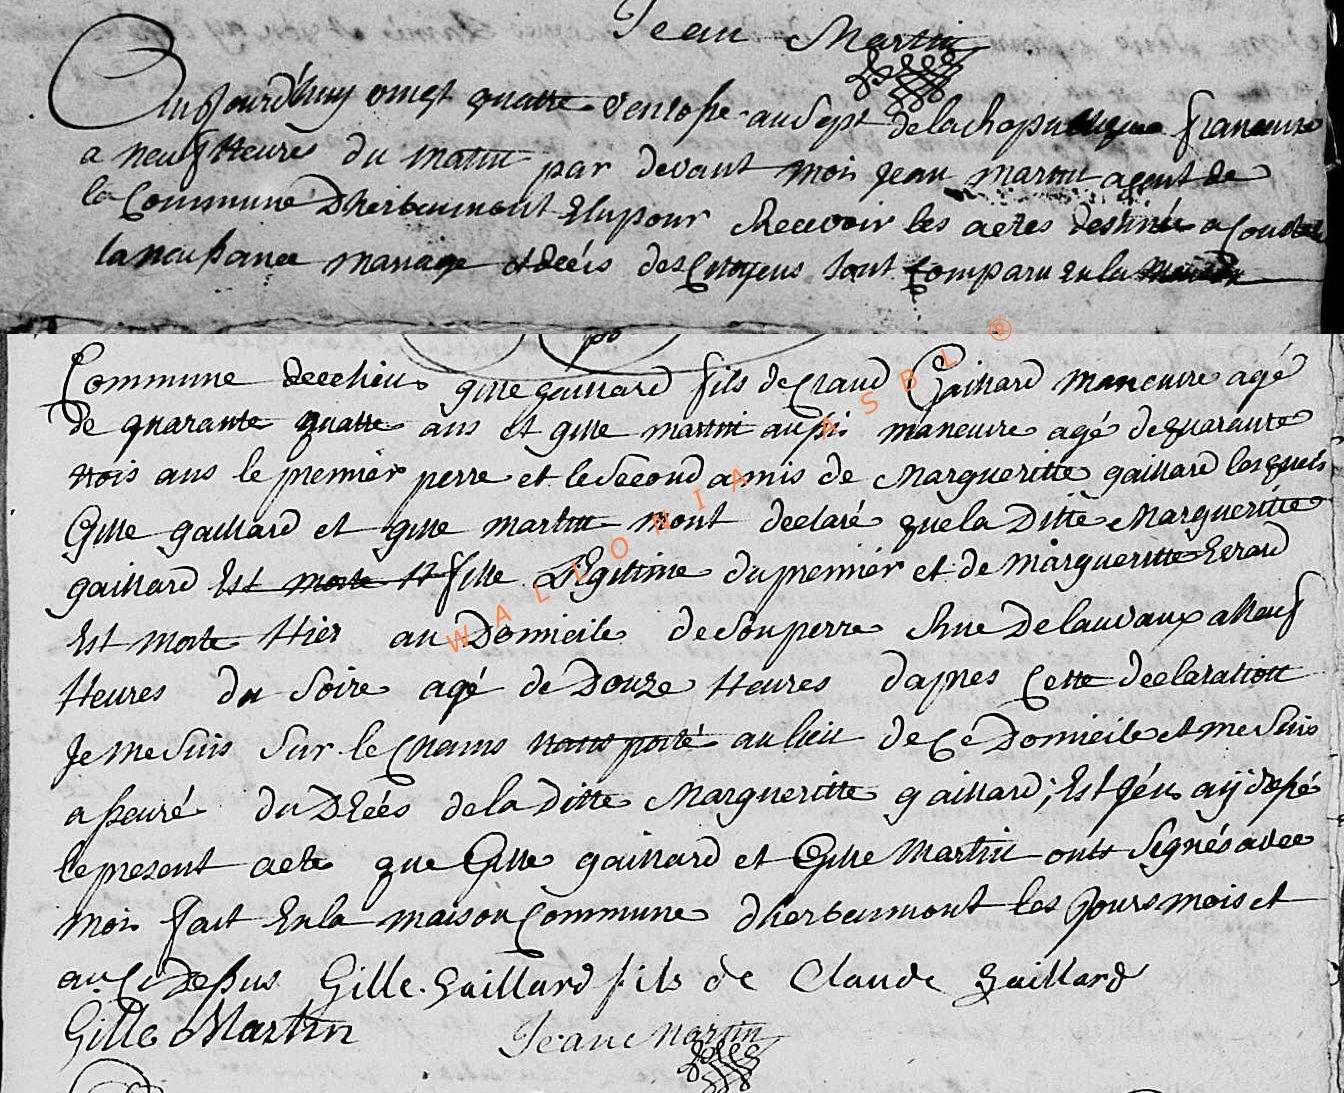 Jean Martin
Aujourd'huy vingt quatre ventose an Sept de la Republique francaise
a neuf Heures du matin par devant moi Jean martin agent de
la Commune Dherbeumont Elu pour Recevoir les actes destinés a Constater
la naissance mariage et decés des Citoyens sont Comparu En la maison
Commune dece lieu gille gaillard fils de Claud Gaillard maneuvre agé
de quarante quatre ans et gille martin aussi maneuvre agé de quarante
trois ans le premier perre et le Second amis de Margueritte gaillard lesquels
Gille gaillard et gille martin mont declaré que la Ditte Margueritte
gaillard Est morte Et fille Legitime du premier et de margueritte Erard
Est morte Hier au Domicile de Son perre Rue Delauvaux a Neuf
Heures du Soire agé de Douze Heures dapres Cette declaration
Je me Suis Sur le Chams transporté au lieu de Ce Domicile et me Suis
assuré du Décés de la Ditte Margueritte gaillard; Est J'en aij dressé
le present acte que Gille gaillard et Gille Martin onts Segnés avec
moi fait En la maison Commune dherbeumont les Jours mois et
an Ci Dessus Gille Gaillard fils de Claude Gaillard
Gille Martin Jean Martin
WALLONIA ASBL ®